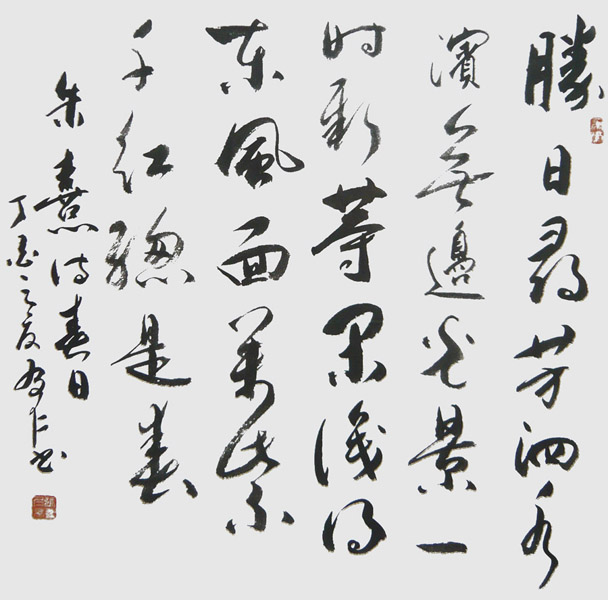 勝日尋芳泗水
濱無邊光景一
時新等閑識得
東風面萬紫
千紅總是春
朱熹詩春日
丁酉之夏仁书